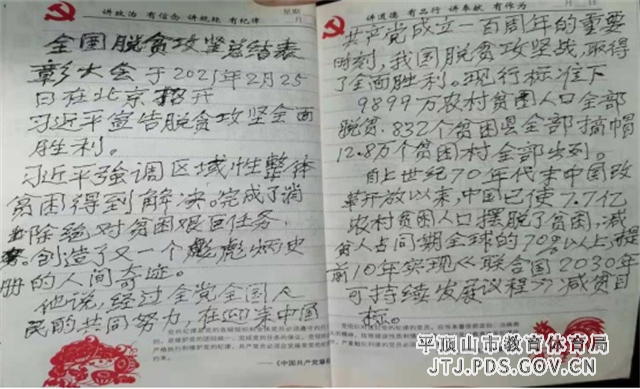 讲政治 有信念 讲规矩 有纪律
星期
月 日
全国脱贫攻坚总结表
彰大会于2021年2月25
日在北京招开
习近平宣告脱贫攻坚全面
胜利。
习近平强调区域性整体
贫困得到解决。完成了消
除绝对贫困艰巨任务
创造了又一个彪彪炳史
册的人间奇迹。
他说,经过全党全国人
民的共同努力,在迎来中国
——《中国共产党章程
讲道德 有品行 讲奉献 有作为
共产党成立一百周年的重要
时刻,我国脱贫攻坚战,取得
了全面胜利。现行标准下
9899万农村贫困人口全部
脱贫.832个贫困县全部摘帽
12.8万个贫困村全部出列。
自上世纪70年代末中国改
革开放以来,中国已使7.7亿
农村贫困人口摆脱了贫困,减
贫人占同期全球的70%以上,提
前10年实现《联合国2030年
可持续发展议程》减贫目
标。
平顶山市教育体育局
JTJ.PDS.GOV.CN